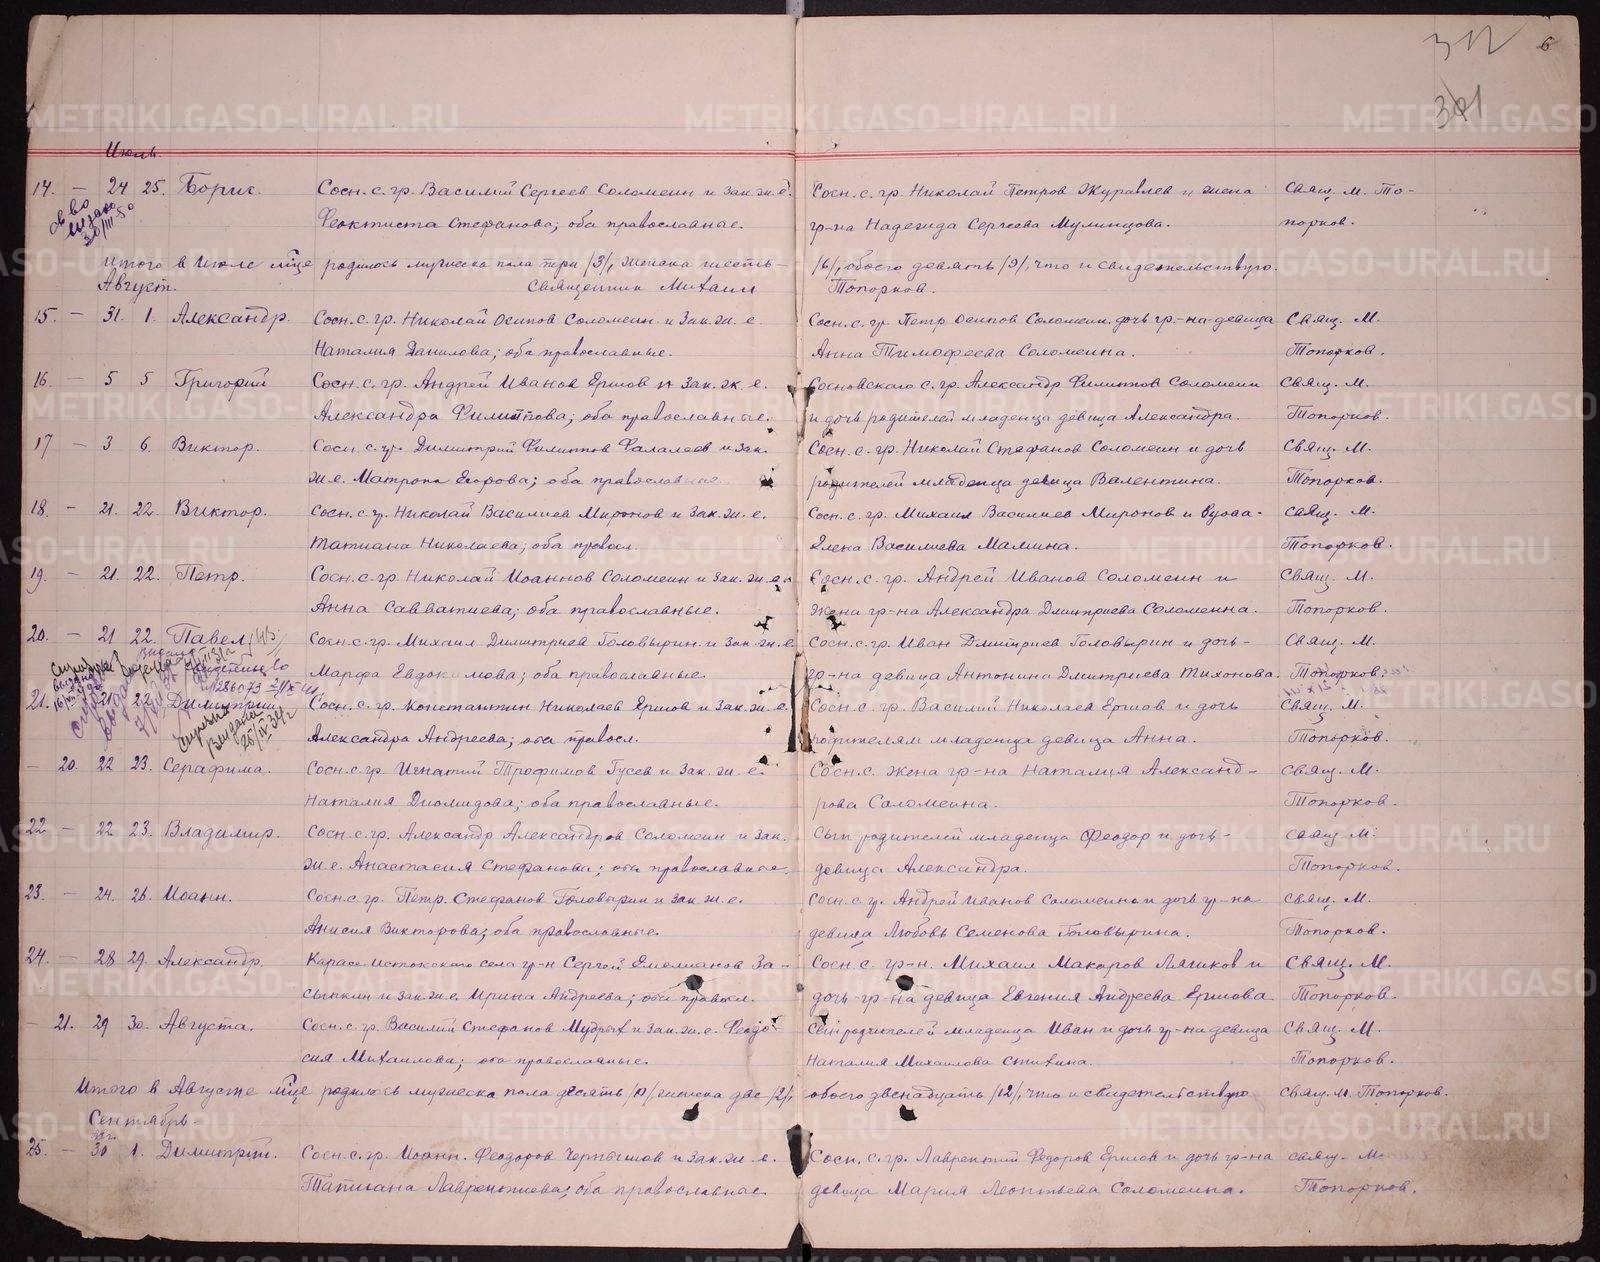 312
6
301
Июль.
14. — 24 25. Борис. Сосн. с. гр. Василий Сергеев Соломеин и зак. ж. е. Сосн. с. гр. Николай Петров Журавлев и жена Свящ. М. То-
св во
30/III 50
Феоктиста Стефанова; оба православные. гр-на Надежда Сергеева Мулинцова. порков.
Итого в Июле м-це родилось мужеска пола три /3/, женска шесть - /6/, обоего девять /9/, что и свидетельствую.
Священник Михаил Топорков.
Август.
15. — 31. 1. Александр. Сосн. с. гр. Николай Осипов Соломеин и зак. ж. е. Сосн. с. гр. Петр Осипов Соломеин, дочь гр.-на девица Свящ. М.
Наталия Данилова; оба православные. Анна Тимофеева Соломеина. Топорков.
16. — 5 5 Григорий Сосн. с. гр. Андрей Иванов Ершов и зак. ж. е. Сосновскаго с. гр. Александр Филиппов Соломеин Свящ. М.
Александра Филиппова; оба православные. и дочь родителей младенца девица Александра. Топорков.
17 — 3 6. Виктор. Сосн. с. гр. Димитрий Филиппов Фалалеев и зак. Сосн. с. гр. Николай Стефанов Соломеин и дочь Свящ. М.
ж. е. Матрона Егорова; оба православные. родителей младенца девица Валентина. Топорков.
18 — 21. 22. Виктор. Сосн. с. гр. Николай Василиев Миронов и зак. ж. е. Сосн. с. гр. Михаил Василиев Миронов и вдова - Свящ. М.
Татиана Николаева; оба правосл. Елена Василиева Малина. Топорков.
19. — 21. 22. Петр. Сосн. с. гр. Николай Иоаннов Соломеин и зак. ж. е. Сосн. с. гр. Андрей Иванов Соломеин и Свящ. М.
Анна Савватиева; оба православные. жена гр-на Александра Дмитриева Соломеина. Топорков.
20. — 21 22. Павел Сосн. с. гр. Михаил Димитриев Головырин и зак. ж. е. Сосн. с. гр. Иван Дмитриев Головырин и дочь - Свящ. М.
Марфа Евдокимова; оба православные. гр-на девица Антонина Дмитриева Тихонова. Топорков.
21. — 21 22. Димитрий Сосн. с. гр. Константин Николаев Ершов и зак. ж. е. Сосн. с. гр. Василий Николаев Ершов и дочь Свящ. М.
Справка
Выдана
Александра Андреева; оба правосл. родителям младенца девица Анна. Топорков.
— 20. 22 23. Серафима. Сосн. с. гр. Игнатий Трофимов Гусев и зак. ж. е. Сосн. с. жена гр-на Наталия Александ- Свящ. М.
Наталия Диомидова; оба православные. рова Соломеина. Топорков.
22 — 22 23. Владимир. Сосн. с. гр. Александр Александров Соломеин и зак. Сын родителей младенца Феодор и дочь - Свящ. М.
ж. е. Анастасия Стефанова; оба православные. девица Александра. Топорков.
23. — 24. 26. Иоанн. Сосн. с. гр. Петр Стефанов Головырин и зак ж. е. Сосн. с. гр. Андрей Иванов Соломеин и дочь гр-на Свящ. М.
Анисия Викторова; оба православные. девица Любовь Семенова Головырина. Топорков.
24. — 28 29. Александр. Карасе-истокскаго села гр-н Сергей Емелианов За- Сосн с. гр-н. Михаил Макаров Лягиков и Свящ. М.
сыпкин и зак. ж. е. Ирина Андреева; оба правосл. дочь гр-на девица Евгения Андреева Ершова. Топорков.
— 21. 29 30. Августа. Сосн. с. гр. Василий Стефанов Мудрых и зак. ж. е. Феодо- Сын родителей младенца Иван и дочь гр-на девица Свящ. М.
сия Михаилова; оба православные. Наталия Михаилова Стихина. Топорков.
Итого в Августе м-це родилось мужеска пола десять /10/, женска две /2/, обоего двенадцать /12/, что и свидетельствую Свящ. М. Топорков.
Сентябрь.
25. — 30 1. Димитрий. Сосн. с. гр. Иоанн. Феодоров Чернышов и зак. ж. е. Сосн. с. гр. Лаврентий Федоров Ершов и дочь гр-на Свящ. М.
Татиана Лаврентиева; оба православные девица Мария Леонтьева Соломеина. Топорков.
METRIKI.GASO-URAL.RU